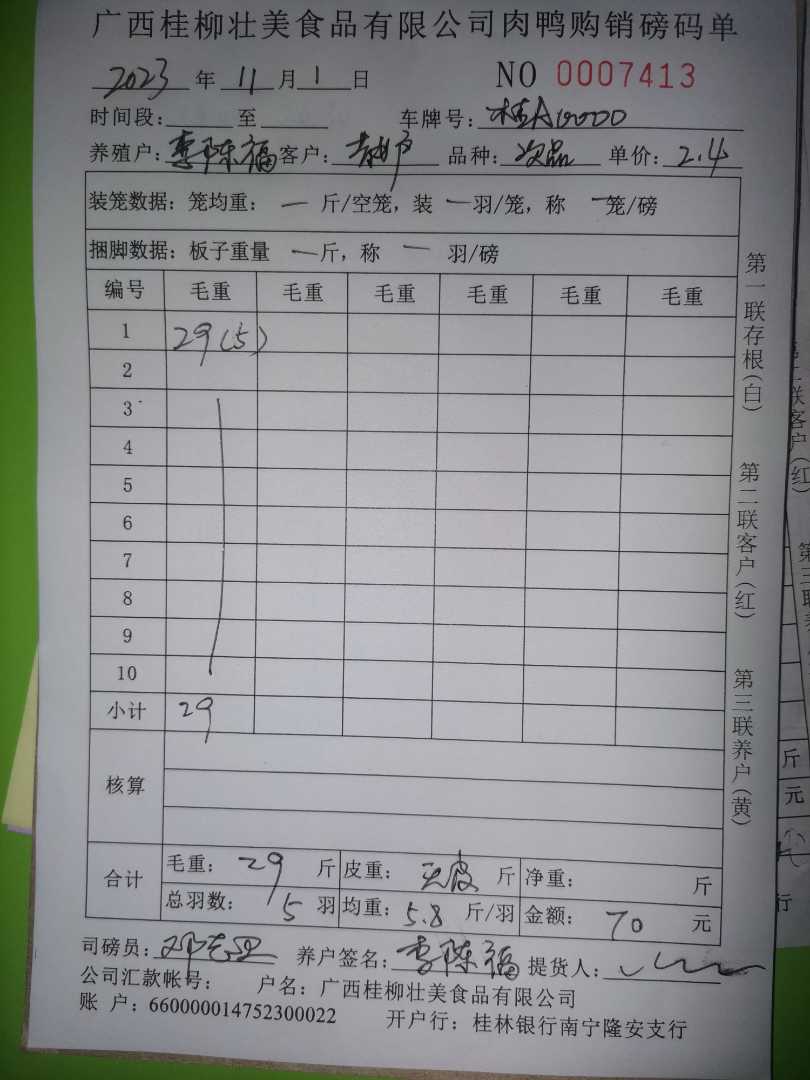 广西桂柳壮美食品有限公司肉鸭购销磅码单
2023 年 11 月 1 日 NO 0007413
时间段: 至 车牌号: 桂A0000
养殖户: 李陈福 客户: 品种: 次品 单价: 2.4
装笼数据: 笼均重: 一 斤/空笼, 装 一 羽/笼, 称 一 笼/磅
捆脚数据: 板子重量 一 斤, 称 一 羽/磅
编号 毛重 毛重 毛重 毛重 毛重 毛重
1 29(5)
2
3
4
5
6
7
8
9
10
小计 29
核算
合计 毛重: 29 斤 皮重: 无皮 斤 净重: 斤
总羽数: 5 羽 均重: 5.8 斤/羽 金额: 70 元
司磅员: 养户签名: 李陈福 提货人:
公司汇款帐号: 户名: 广西桂柳壮美食品有限公司
账 户: 660000014752300022 开户行: 桂林银行南宁隆安支行
第一联存根(白)
第二联客户(红)
第三联养户(黄)
斤
元
行